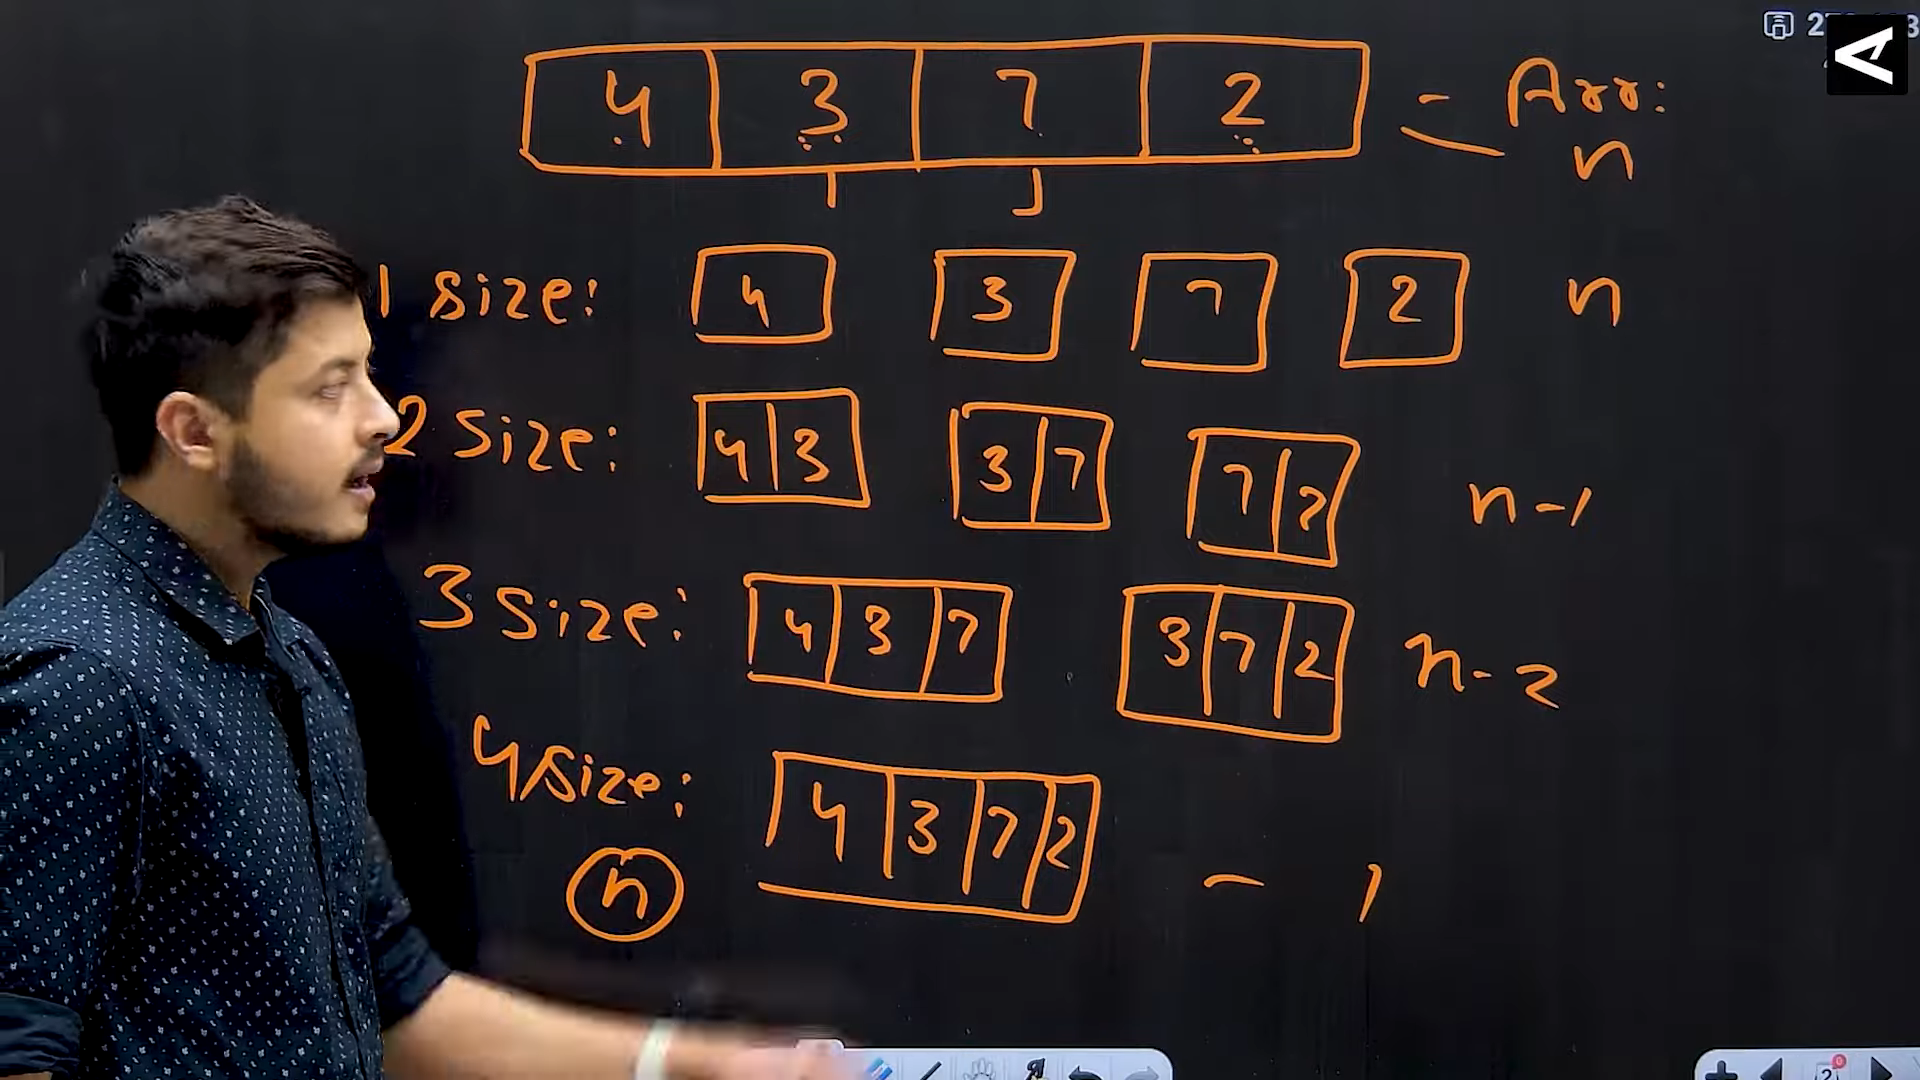 4 3 7 2 - Arr:
n
i j
1 size: 4 3 7 2 n
2 size: 4 3 3 7 7 2 n-1
3 size: 4 3 7 3 7 2 n-2
4 size: 4 3 7 2 - 1
n